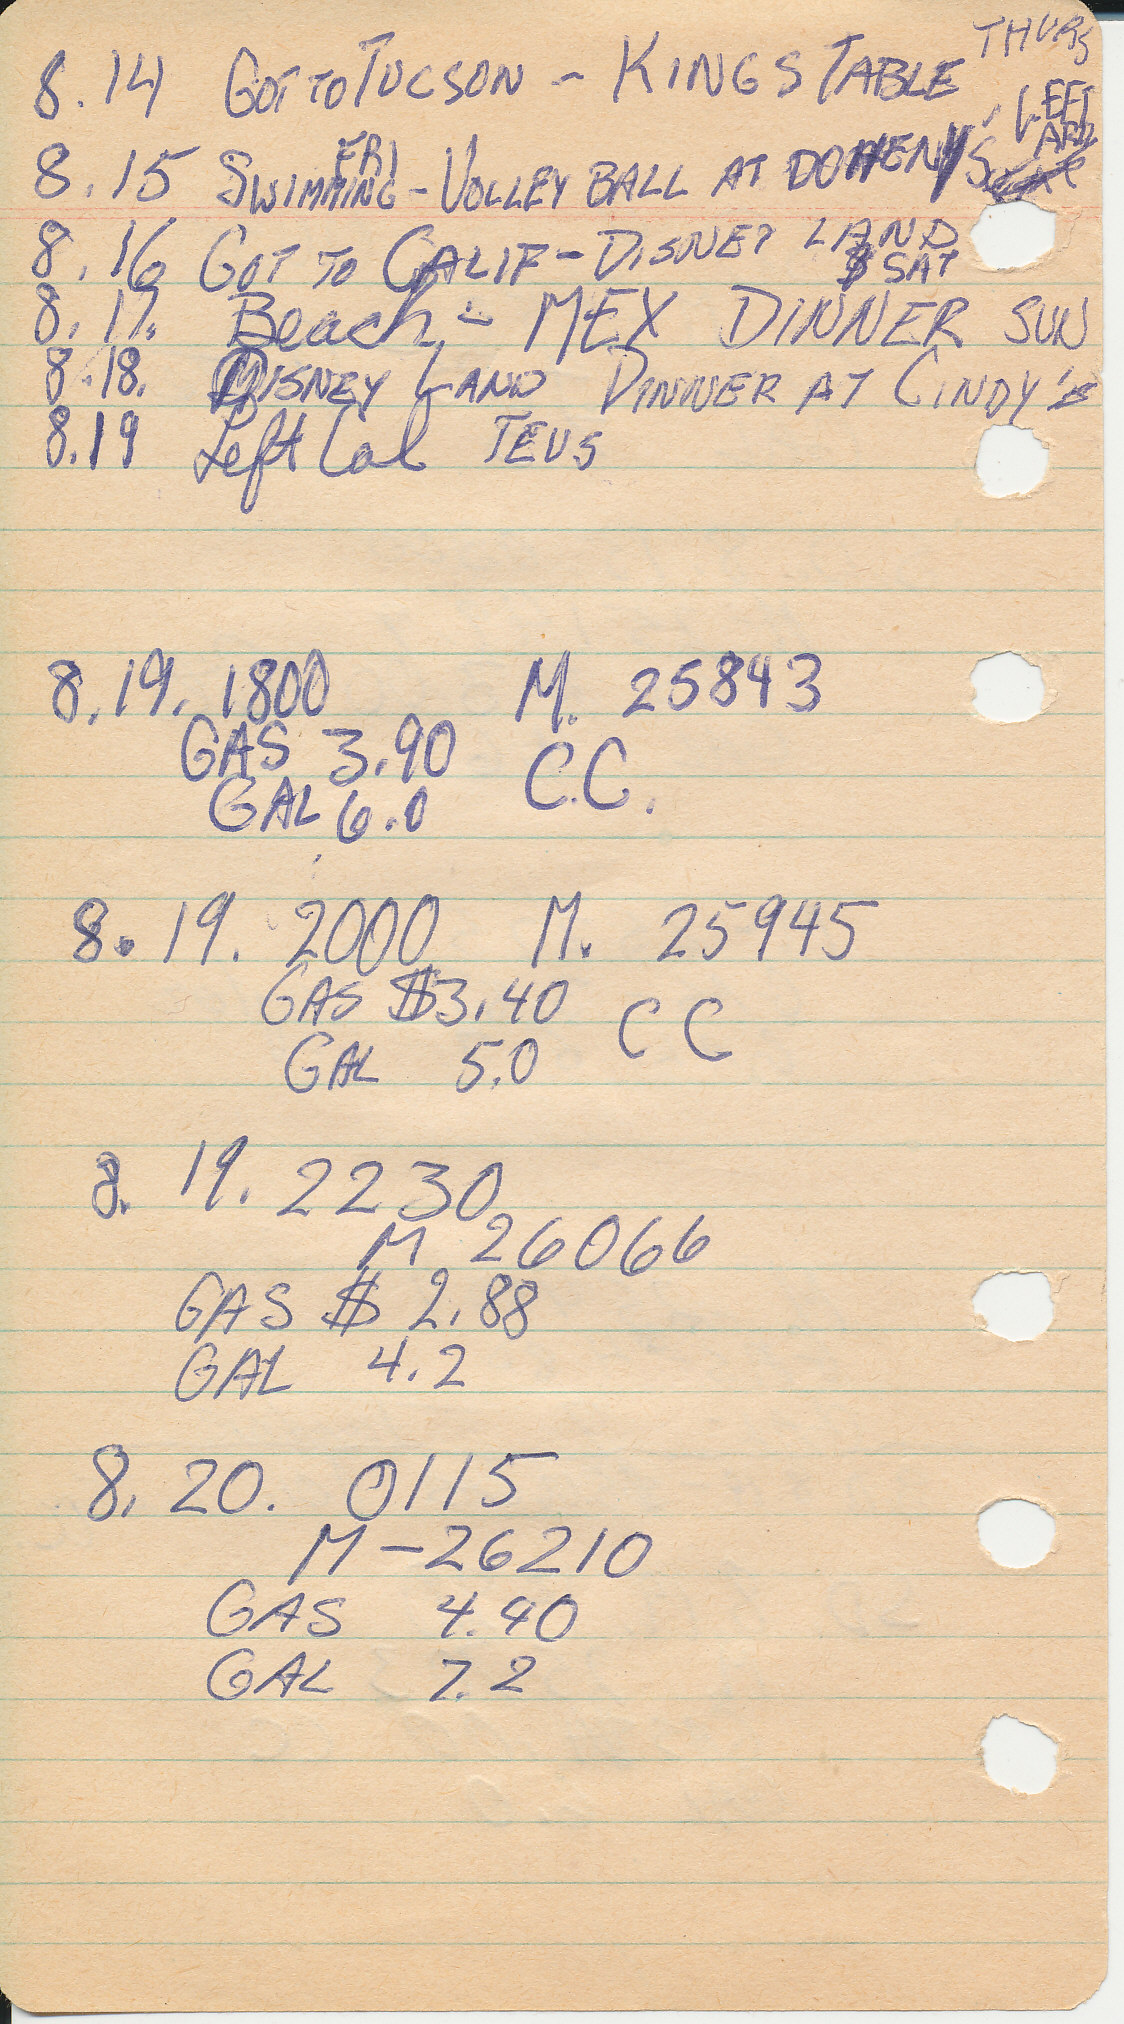 8.14 GOT TO TUCSON - KINGS TABLE THURS
8.15 SWIMMING - VOLLEY BALL AT DOHENYS, LEFT ARIZ
FRI
8.16 GOT TO CALIF - DISNEY LAND
$ SAT
8.17. Beach - MEX DINNER SUN
8.18. DISNEY LAND DINNER AT CINDY'S
8.19 Left Cal TEUS
8.19. 1800 M. 25843
GAS 3.90 C.C.
GAL 6.0
8.19. 2000 M. 25945
GAS $3.40 CC
GAL 5.0
8. 19. 2230
M 26066
GAS $ 2.88
GAL 4.2
8. 20. 0115
M - 26210
GAS 4.90
GAL 7.2